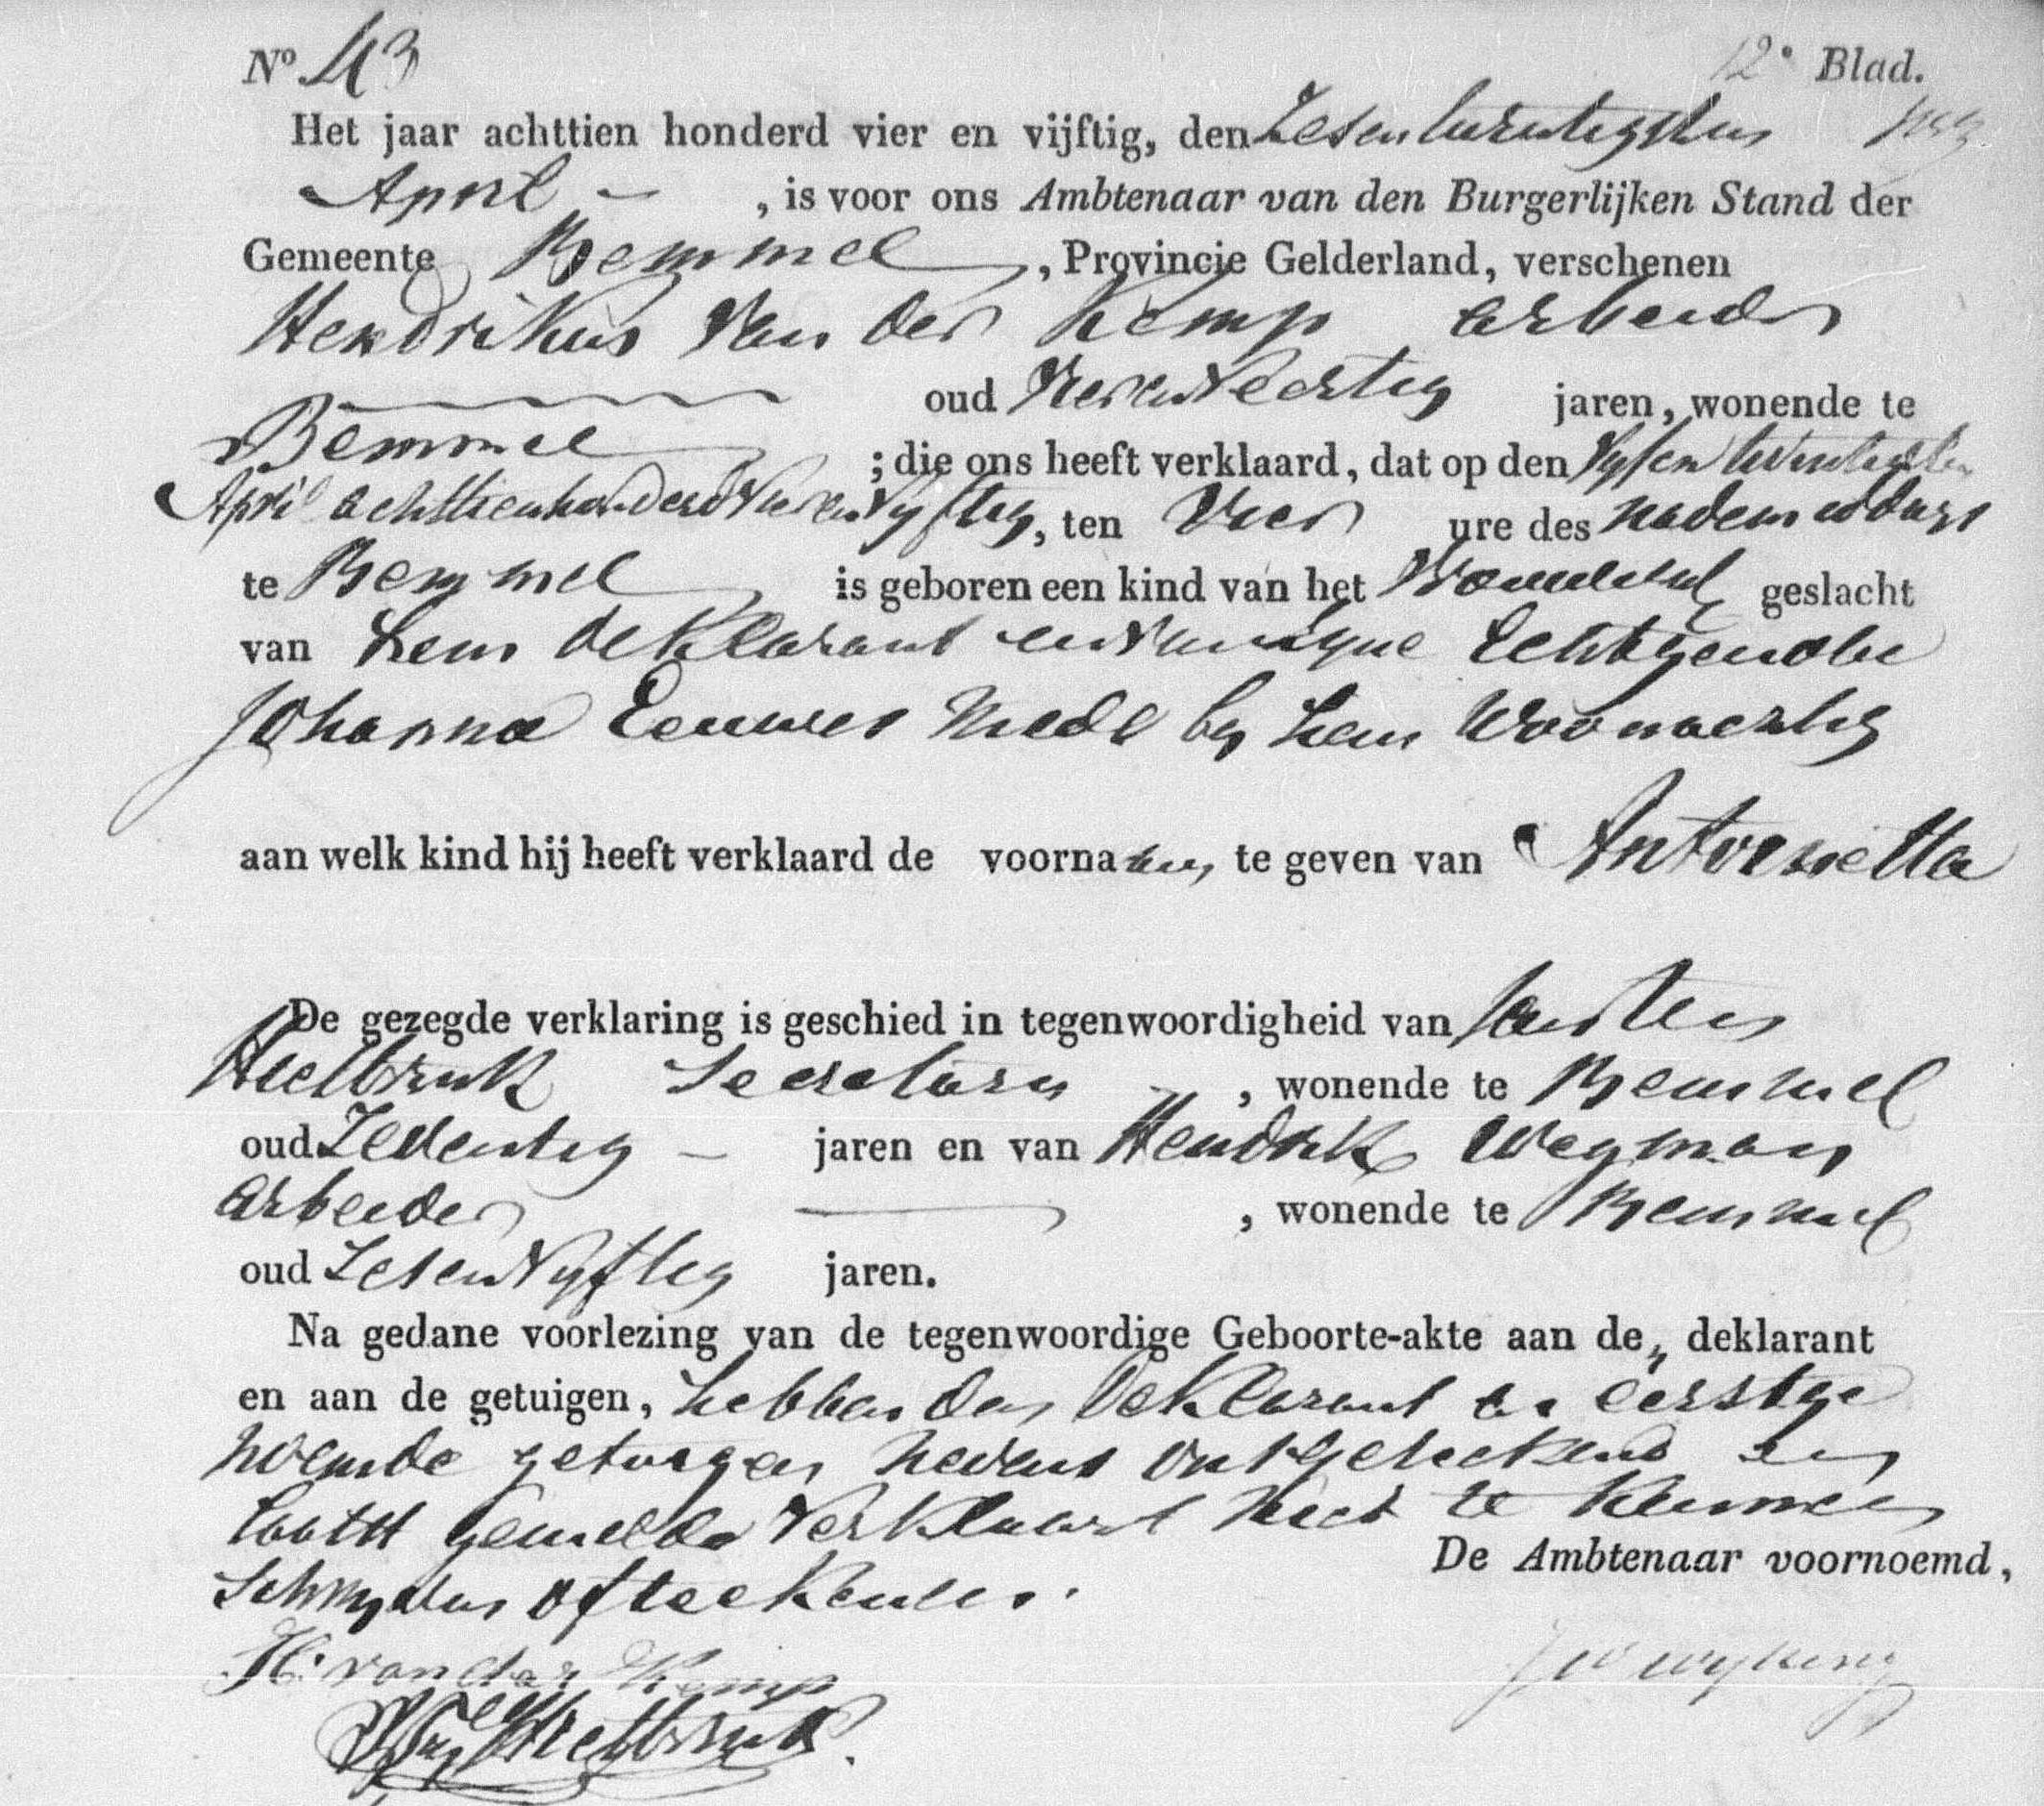 No 43 12e Blad.
Het jaar achttien honderd vier en vijftig, den Zesentwintigsten
April, is voor ons Ambtenaar van den Burgerlijken Stand der
Gemeente Bemmel, Provincie Gelderland, verschenen
Hendrikus Van der Kemp arbeider
oud Vierenveertig jaren, wonende te
Bemmel ; die ons heeft verklaard, dat op den Vyfentwintigsten
April achttienhonderd Vierenvyftig, ten Vier ure des nademiddags
te Bemmel is geboren een kind van het Vrouwelyk geslacht
van hem deklarant en van zyne Echtgenote
Johanna Eeuwes mede by hem Woonachtig
aan welk kind hij heeft verklaard de voornamen, te geven van Antoenetta
De gezegde verklaring is geschied in tegenwoordigheid van
Heelbrink Secretaris, wonende te Bemmel
oud Zeventig jaren en van Hendrik Wegman
arbeider, wonende te Bemmel
oud Zesenvyftig jaren.
Na gedane voorlezing van de tegenwoordige Geboorte-akte aan de„ deklarant
en aan de getuigen, hebben den deklarant en eerstge
noemde getuigen nevens ons geteekend en
laatst gemelde verklaard niet te kunnen
De Ambtenaar voornoemd,
Schryven of teekenen.
H. van der Kemp